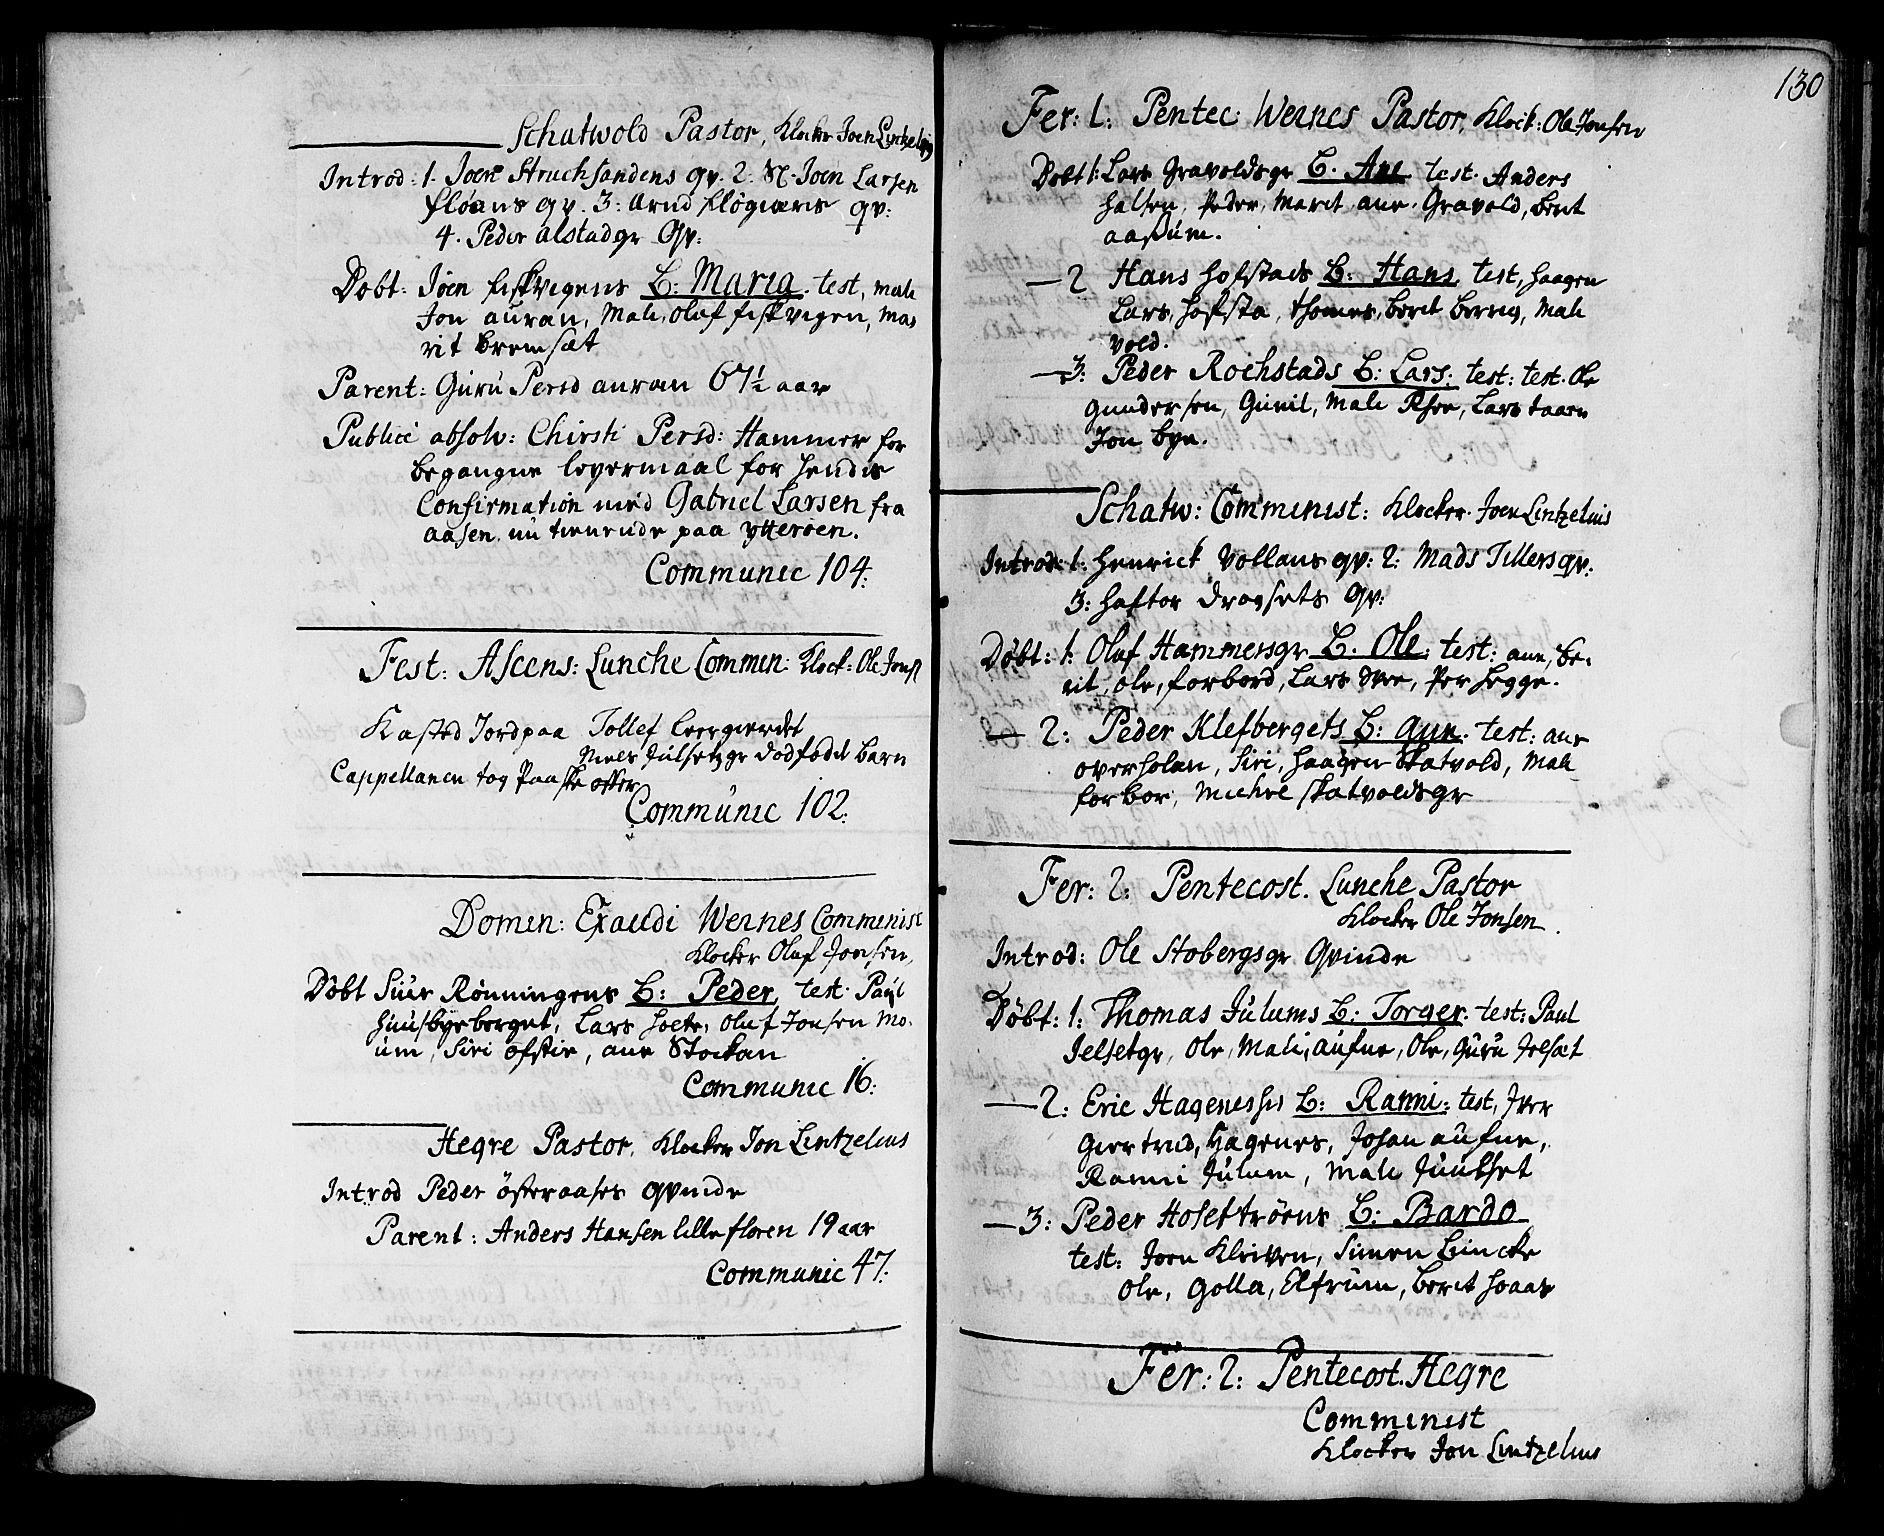 Schatwold Pastor, Klocker Joen Lintzelius
Introd: 1. Joen Struchsandens qv. 2: Sl. Joen Larsen
fløans qv. 3: Arnd kløgværis qv:
4. Peder alstadgr Qv:
Døbt: Joen fiskvigens B: Maria. test, mali
Jon auran, Mali, Oluf fiskvigen, Ma=
rit bremsæt
Parent: Guru Persd auran 67½ aar
Publicè absolv: Chirsti Persd: Hammer for
begangne leyermaal for hendis
Confirmation med Gabriel Larsen fra
aasen. nu tienende paa ytterøen.
Communic 104:
Fest: Ascens: Lunche Commin: Klock: Ole Jons:
Kasted Jord paa Tollef leergierdet
Niels Julsetgr dødfødd barn
Cappellanen tog Paaske offer
Communic 102:
Domin: Exaudi Wernes Comminist
Klocker Oluf Jonsen,
Døbt Siur Rønningens B: Peder, test. Paul
Huusbyeberget, Lars holte, Oluf Jonsen Mo-
um, Siri ofstie, ane Stockan
Communic 16:
Hegre Pastor, Klocker Jon Lintzelius
Introd Peder østeraases qvinde
Parent: Anders Hansen lille floren 19 aar
Communic 47:
130
Fer: 1: Pentec: Wernes Pastor, Klock: Ole Jonsen
Døbt 1: Lars Gravoldsgr B. Ane test. Anders
halsen, Peder, Marit ane. Gravold, berit
aasum.
— 2 Hans hofstads B: Hans test, haagen
Lars, hofsta, thomes, berit berres, Mali
vold.
— 3: Peder Rochstads B: Lars: test: test. Ole
gundersen, Gunil, Mali Rhee, Lars taarn
Jon bye.
Schatw: Comminist: Klocker Joen Lintzelius
Introd: 1: henrick Vollans qv: 2: Mads Tillers qv:
3: haftor Dravsets Qv:
Døbt: 1: Oluf Hammersgr B. Ole: test: ane, be-
rit, ole, forbord, Lars Svee, Per hegge.
— 2: Peder Klefbergets B: Gun. test: ane
overholan, Siri, haagen Skatvold, Mali
forbor, Michel skatvoldsgr
Fer: 2: Pentecost. Lunche Pastor
Klocker Ole Jonsen.
Introd: Ole Stobergsgr Qvinde
Døbt: 1: Thomas Julums B: Torger. test: Paul
Jelsetgr, Ole, Mali, aufne, Ole, Guru Jelsæt
— 2: Eric Hagenes hs B: Ranni: test, Iver
Giertrud, Hagenes, Johan aufne,
Ranni Julum, Mali Juulset
— 3: Peder Hosettrøens B: Bardo
test: Joen Kleiven, Simen Bincke
Ole, Golla, Elfrum, berit hoaas
Fer: 2: Pentecost. Hegre
Comminist
Klocker Jon Lintzelius